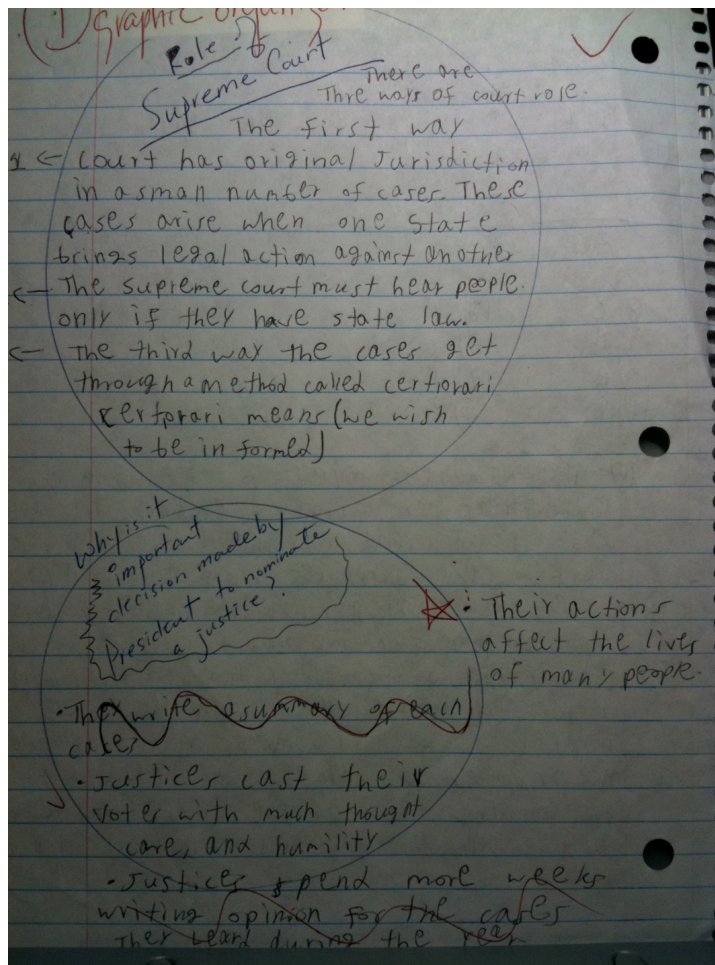 (1) Graphic Organizer
Role of
Supreme Court
There are
Thre ways of court role.
The first way
1 ← court has original Jurisdiction
in a small number of cases. These
cases arise when one State
brings legal action against another
← The supreme court must hear people.
only if they have state law.
← The third way the cases get
through a method called certiorari
certiorari means (we wish
to be in formed)
Why is it
important
decision made by
President to nominate
a justice?
• Their actions
affect the lives
of many people.
• They write a summary of each
case,
• Justices cast their
votes with much thought
care, and humility
• Justices spend more weeks
writing opinion for the cases
They heard during the year